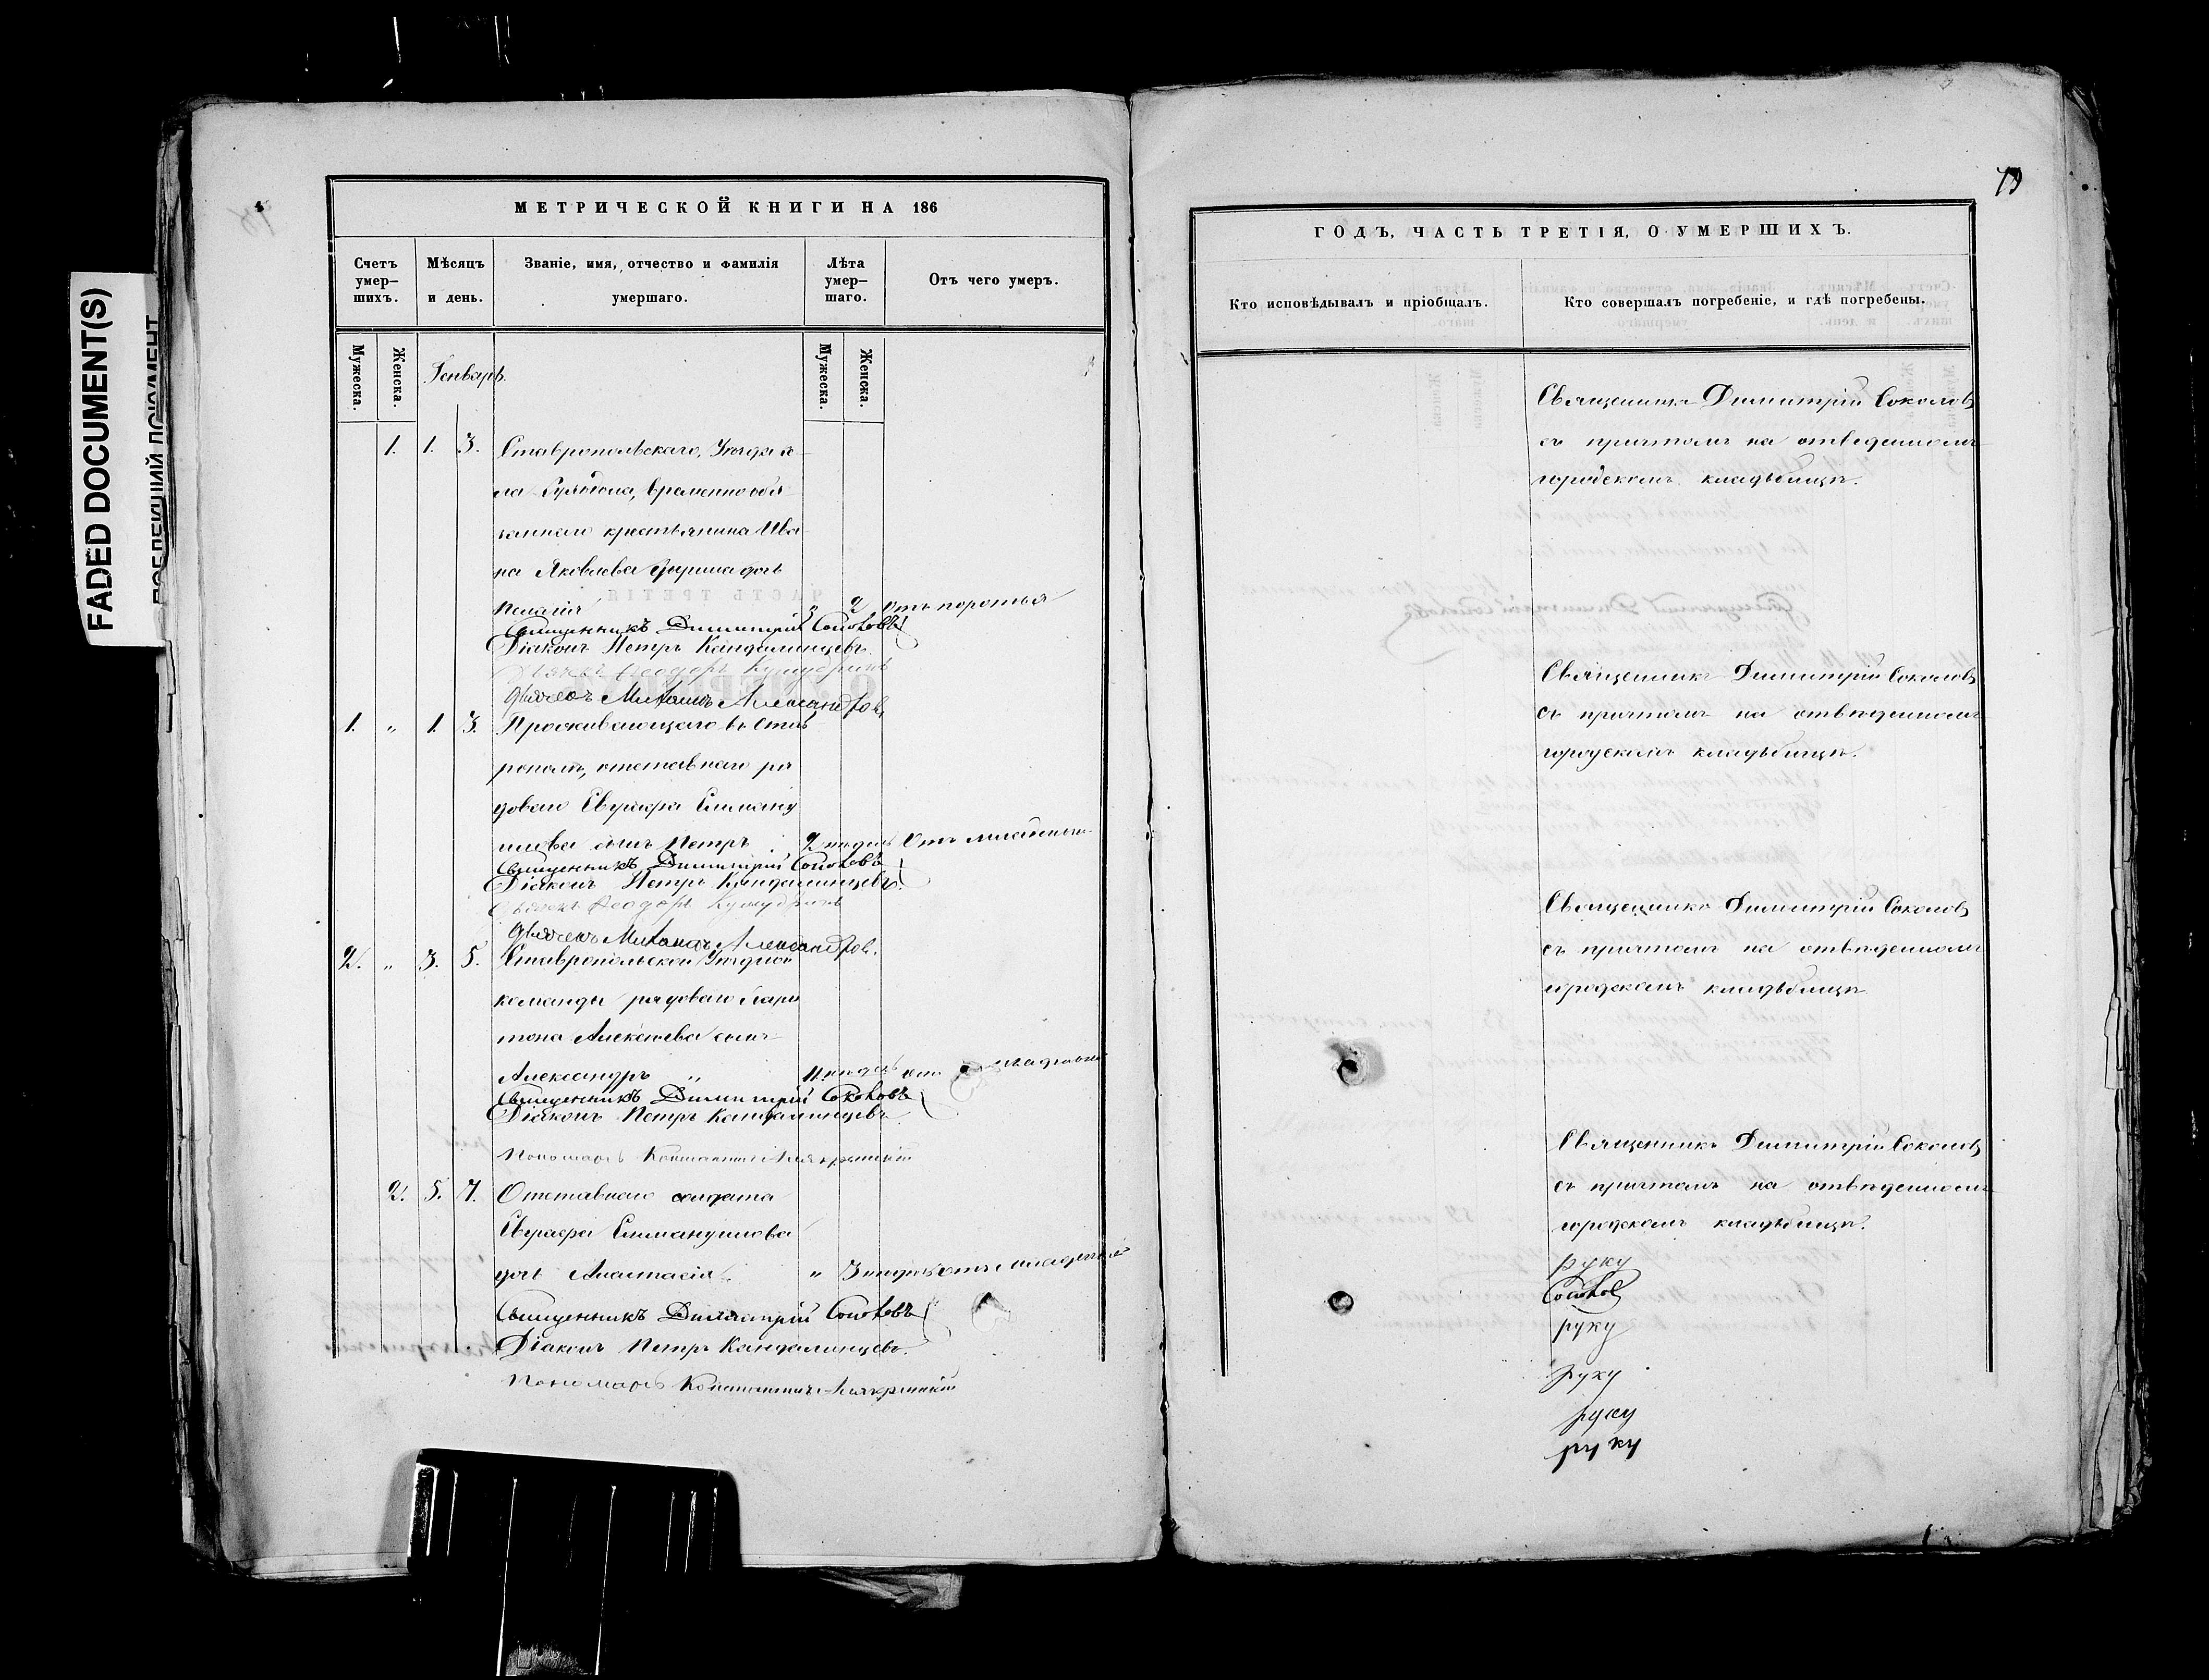 FADED DOCUMENT(S)
МЕТРИЧЕСКОЙ КНИГИ НА 186
Счетъ умер-шихъ.
Мѣсяцъ и день.
Званіе, имя, отчество и фамилія умершаго.
Лѣта умер-шаго.
Отъ чего умеръ.
Мужеска.
Женска.
Генварь.
Мужеска.
Женска.
1. 1. 3. Ставропольскаго Уѣзда се
ла временно обя
заннаго крестьянина Ива
на Яковлева дочь
Пелагія " 2
Священникъ Димитрій Соколовъ
Діаконъ Петръ Кандалинцевъ.
Дьячекъ Михаилъ Александровъ
1. " 1. 3. Проживающаго въ Став
рополѣ, отставнаго ря
доваго Евграфа
сынъ Петръ 2 недѣль Отъ
Священникъ Димитрій Соколовъ
Діаконъ Петръ Кандалинцевъ.
Дьячекъ Михаилъ Александровъ.
2. " 3. 5. Ставропольской Уѣздной
команды рядоваго Хари
тона Алексѣева сынъ
Александръ "
Священникъ Димитрій Соколовъ
Діаконъ Петръ Кандалинцевъ.
Пономарь Константинъ
2. 5. 7. Отставнаго солдата
Евграфа
дочь Анастасія " 3 недѣль отъ
Священникъ Димитрій Соколовъ
Діаконъ Петръ Кандалинцевъ.
Пономарь Константинъ
79
ГОДЪ, ЧАСТЬ ТРЕТІЯ, О УМЕРШИХЪ.
Кто исповѣдывалъ и пріобщалъ.
Кто совершалъ погребеніе, и гдѣ погребены.
Священникъ Димитрій Соколовъ
съ причтомъ на отведенномъ
городскомъ кладбищѣ.
Священникъ Димитрій Соколовъ
съ причтомъ на отвѣденномъ
городскомъ кладбищѣ.
Священникъ Димитрій Соколовъ
съ причтомъ на отвѣденномъ
городскомъ кладбищѣ
Священникъ Димитрій Соколовъ
съ причтомъ на отвѣденномъ
городскомъ кладбищѣ.
руку
Соколов
руку
руку
руку
руку